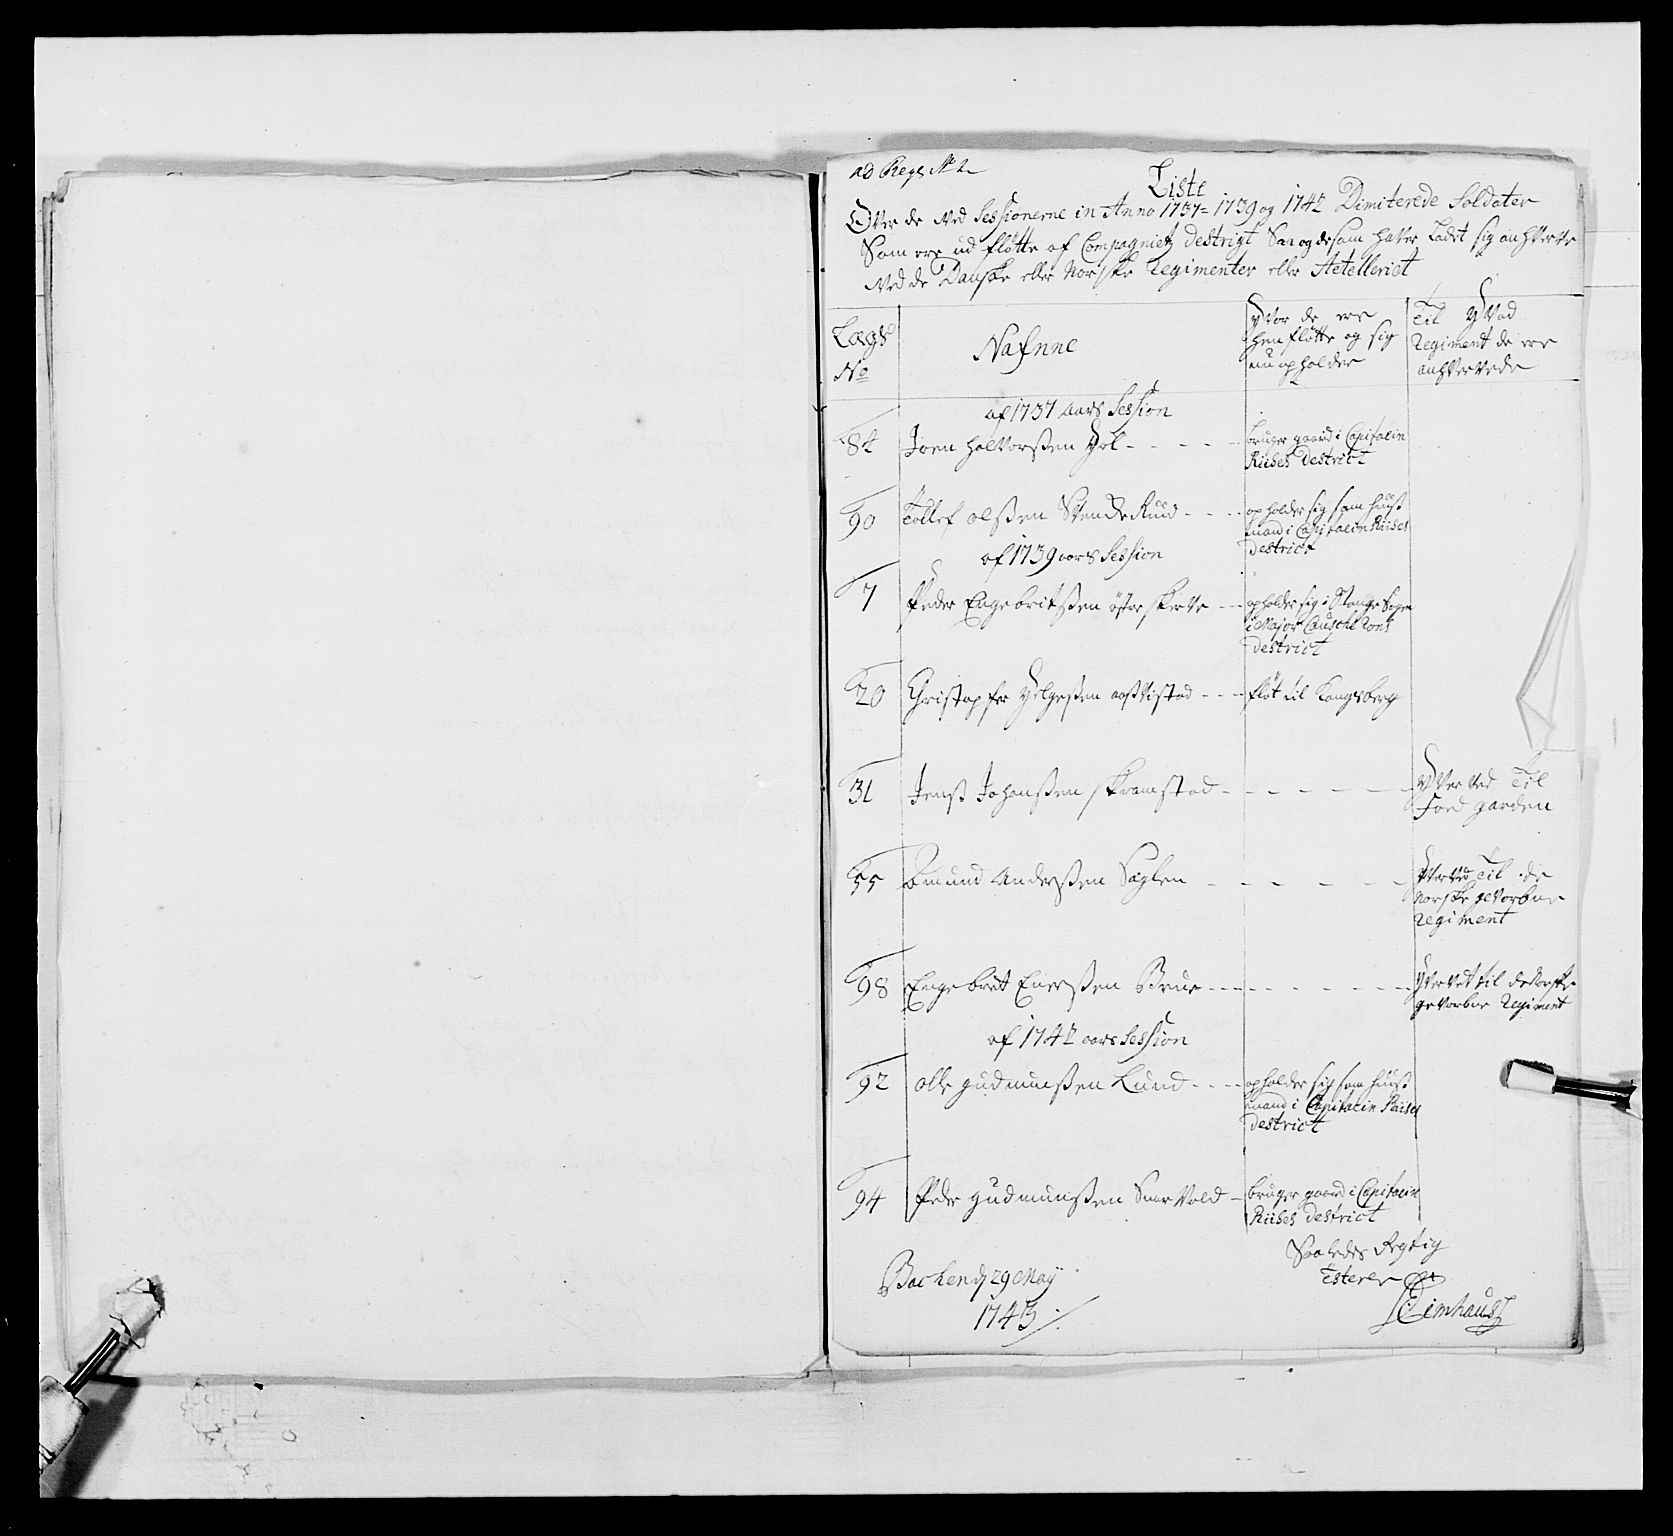 ad Reg: No 2
Liste
Over de ved Sessionerne in Anno 1737 = 1739 og 1742 Dimiterede Soldater
Som ere ud fløtte af Compagniets destrigt Saa og de som haver Ladet sig anhverve
ved de Danske eller Norske Regimenter eller Aetelleriet
Lægs
No
Nafnne
Hvor de ere
henfløtte og sig
nu opholder
Til Hvad
Regiment de ere
anhvervede
af 1737 aars Session
84 Joen Halvorsßen Hol - - - - bruger gaard i Capitain
Riises destrict
90 Tollef olsßen StendeRuud - - - opholder sig som huuß
mand i Capitain Riises
destrict
af 1739 aars Session
7 Peder Engebritsßen øster skerve - - opholder sig i Stange Sogn
i Major
destrict
20 Christopher Helgesßen - - - fløt til Kongsberg
31 Jens Johansßen skramstad - - - - - Hverved Til
Foed garden
55 Amund Andersßen Saglen - - - - - Hverved Til de
Norske gevorbne
Regiment
98 Engebret Enersßen Brue - - - - - Hvervet til de Norske
gevorbne Regiment
af 1742 aars Session
92 olle gudmunsßen Lund - - - opholder sig som huuß
mand i Capitain Riises
destrict
94 Peder gudmunsßen SnarVold - bruger gaard i Capitain
Riises destrict
Saaledes Rigtig
Testerer
Bachen d 29 May
1743